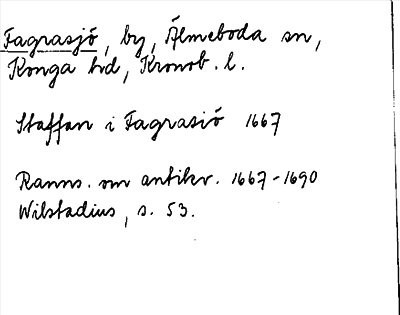 Fagrasjö, by, Älmeboda sn,
Konga hd, Kronob. l.
Staffan i Fagrasiö 1667
Ranns. om antikv. 1667-1690
Wilstadius, s. 53.